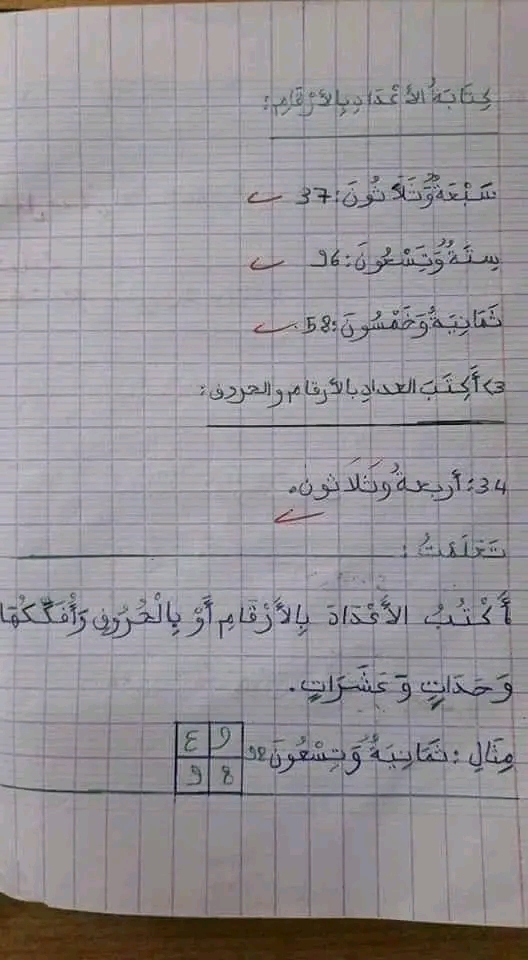 كِتَابَةُ الأَعْدَادِ بِالأَرْقَامِ:
سَبْعَةٌ وَثَلَاثُونَ: 37
سِتَةٌ وَتِسْعُونَ: 96
ثَمَانِيَةٌ وَخَمْسُونَ: 58
3> أَكْتِبَ العداد بالأرقام والحروف:
34: أربعةُ وَثَلَاثون.
تَعَلَمْتُ:
أَكْتُبُ الأَعْدَادَ بِالأَرْقَامِ أَوْ بِالْحُرُوفِ وَأُفَكِّكُهَا
وَحَدَاتٍ وَعَشَرَاتٍ.
مِثَالِ: ثَمَانِيَةٌ وَتِسْعُونَ 98
و ع
8 9